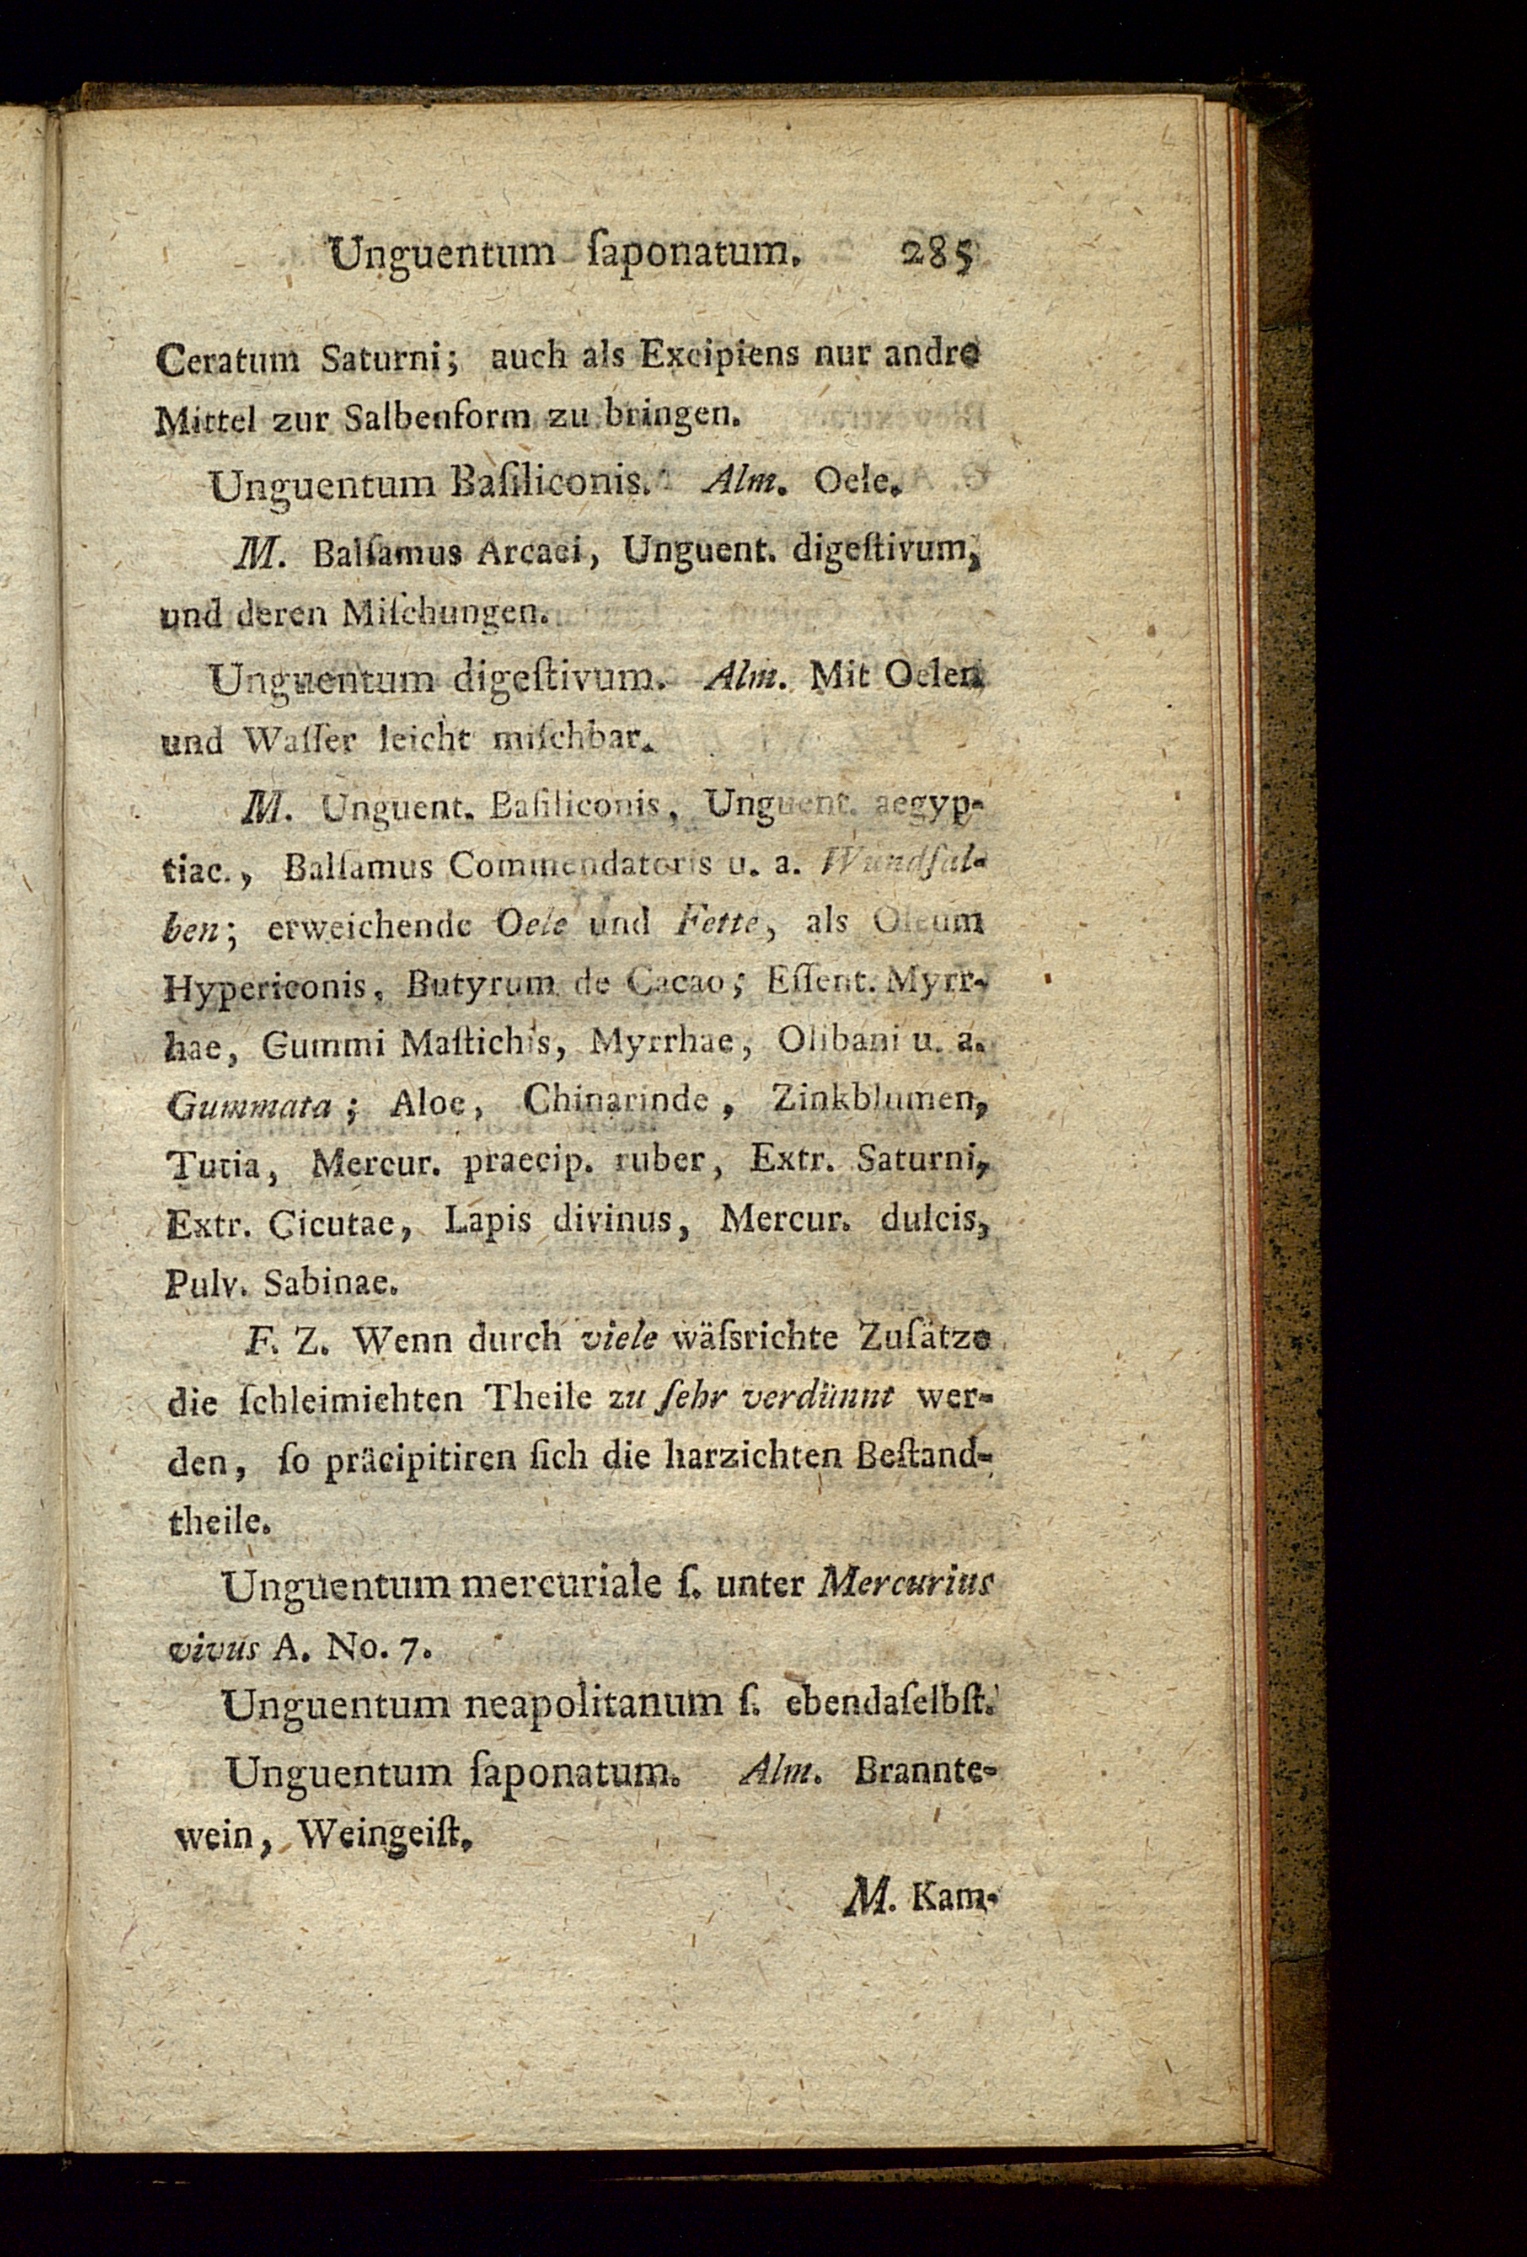 Unguentum ſaponatum. 285
Ceratum Saturni; auch als Excipiens nur andre
Mittel zur Salbenform zu bringen.
Unguentum Baſiliconis. Alm. Oele.
M. Balſamus Arcaei, Unguent. digeſtivum,
und deren Miſchungen.
Unguentum digeſtivum. Alm. Mit Oelen
und Waſſer leicht miſchbar.
M. Unguent. Baſiliconis, Unguent. aegyp-
tiac., Balſamus Commendatoris u. a. Wundſal-
ben; erweichende Oele und Fette, als Oleum
Hypericonis, Butyrum de Cacao; Eſſent. Myrr-
hae, Gummi Maſtichis, Myrrhae, Olibani u. a.
Gummata; Aloe, Chinarinde, Zinkblumen,
Tutia, Mercur. praecip. ruber, Extr. Saturni,
Extr. Cicutae, Lapis divinus, Mercur. dulcis,
Pulv. Sabinae.
F. Z. Wenn durch viele wäſsrichte Zuſätze
die ſchleimichten Theile zu ſehr verdünnt wer-
den, ſo präcipitiren ſich die harzichten Beſtand-
theile.
Unguentum mercuriale ſ. unter Mercurius
vivus A. No. 7.
Unguentum neapolitanum ſ. ebendaſelbſt.
Unguentum ſaponatum. Alm. Brannte-
wein, Weingeiſt.
M. Kam-